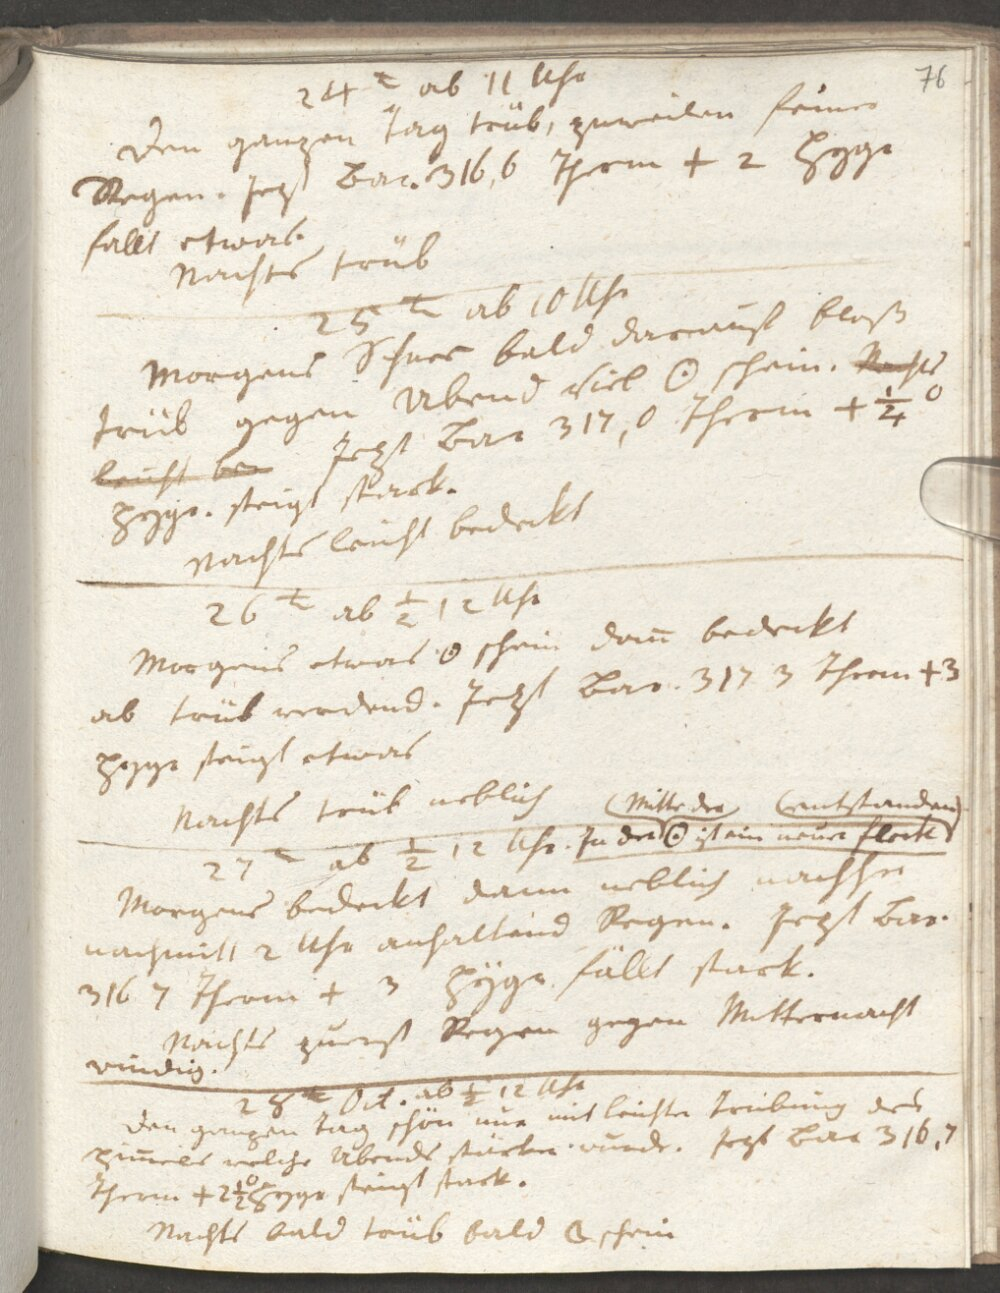 76
24t ab 11 Uhr
Den ganzen Tag trüb, zuweilen feiner
Regen. Jezt Bar. 316,6 Therm + 2 Hygr
fallt etwas.
Nachts trüb
25t ab 10 Uhr
Morgens Schnee bald darauf bloß
trüb gegen Abend viel ☉ schein. Nachts
leicht be Jezt Bar 317,0 Therm + 1/4 0
Hygr. steigt stark.
Nachts leicht bedeckt
26t ab 1/2 12 Uhr
Morgens etwas ☉ schein dann bedeckt
ab trüb werdend. Jetzt Bar. 317 3 Therm + 3
Hygr steigt etwas
Nachts trüb neblich
(Mitte der) (entstanden)
27t ab 1/2 12 Uhr. In der ☉ ist ein neuer Fleck
Morgens bedeckt dann neblich nachher
nachmitt 2 Uhr anhaltend Regen. Jezt Bar.
316 7 Therm + 3 Hÿgr. fällt stark.
Nachts zuerst Regen gegen Mitternacht
windig.
28t Oct. ab 1/2 12 Uhr
Den ganzen Tag schön nur mit leichter Trübung des
Himels welche Abends stärker wurde. Jezt Bar 316,7
Therm + 2 1/2 0 Hygr steigt stark.
Nachts bald trüb bald ☾ schein